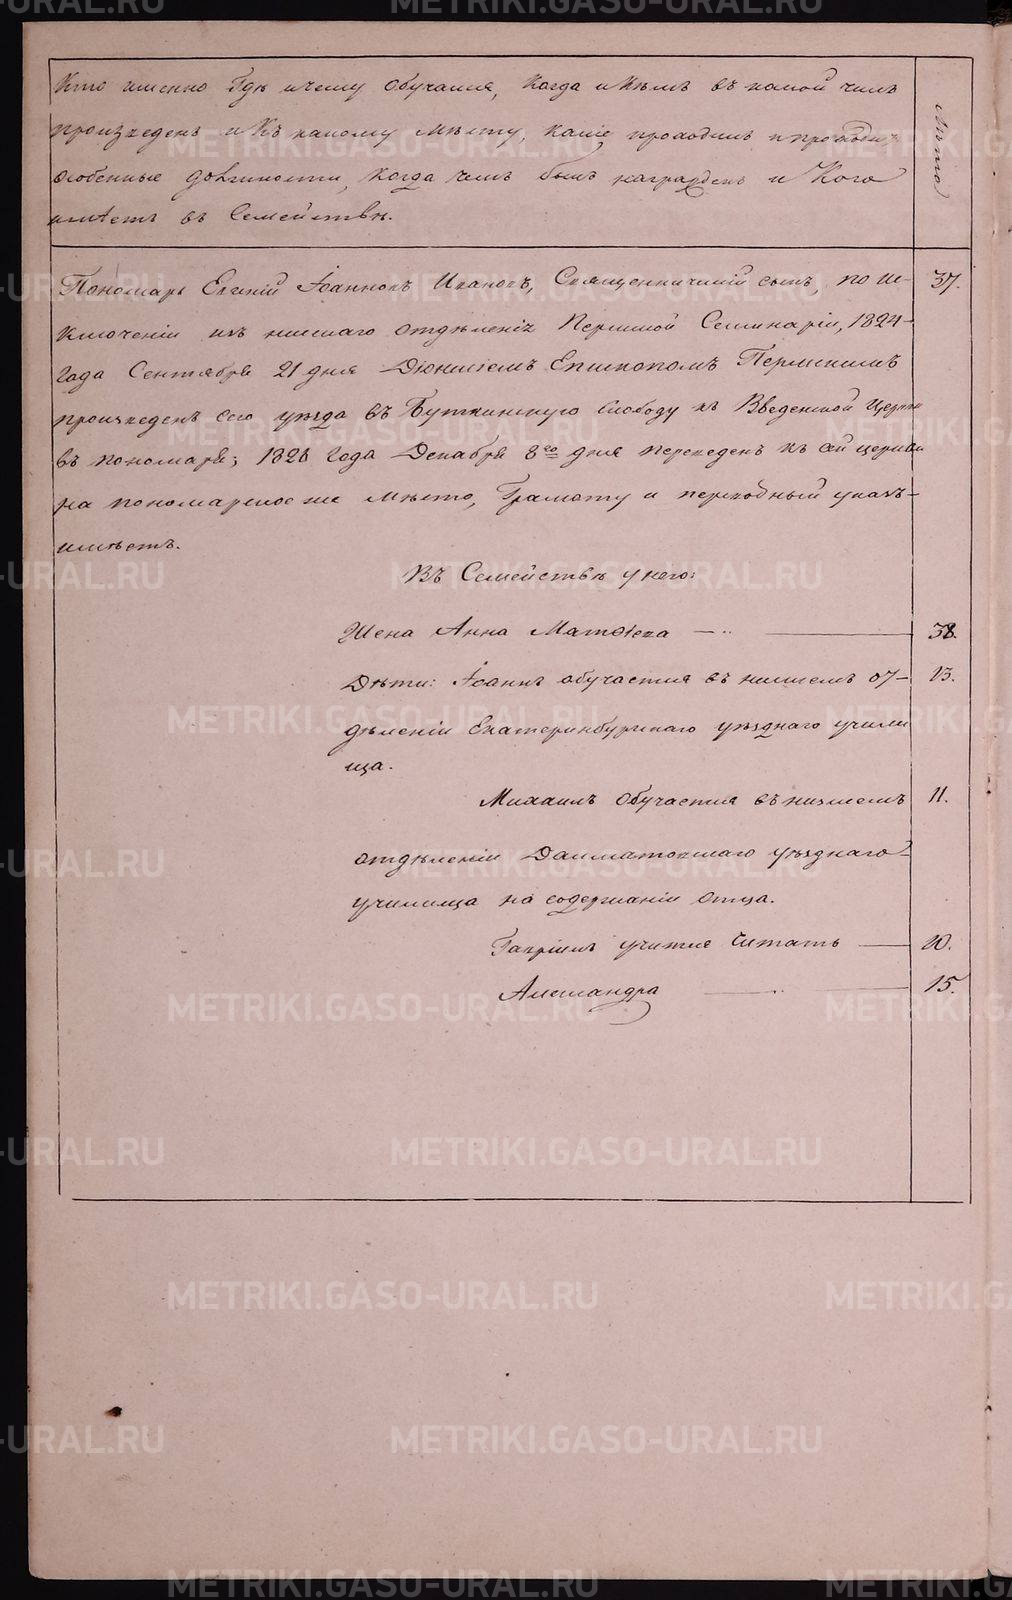 Кто именно Гдѣ и чему обучался, Когда и Кѣмъ въ какой чинъ
произведенъ и Къ какому мѣсту, какiе проходилъ и проходитъ
особенные должности, Когда чемъ былъ награжденъ и Кого
имѣетъ въ Семействѣ.
Лѣта
Пономарь Евгенiй Iоанновъ Ивановъ, Священническiй сынъ, по ис- 37.
ключенiи изъ низшаго отдѣленiя Пермской Семинарiи, 1824-
года Сентября 21 дня Дiонисiемъ Епископомъ Пермскимъ
произведенъ сего уѣзда въ Буткинскую слободу къ Введенской Церкви
въ пономаря; 1828 года Декабря 8го дня переведенъ къ сей церкви
на пономарское же мѣсто, Грамоту и переходный указъ-
имѣетъ.
Въ Семействѣ у него:
Жена Анна Матѳiева 38.
Дѣти: Iоаннъ обучается въ низшемъ от- 13.
дѣленiи Екатеринбургскаго уѣзднаго учили
ща.
Михаилъ обучается въ низшемъ 11.
отдѣленiи Далматовскаго уѣзднаго-
училища на содержанiи отца.
Гаврiилъ учится читать 10.
Александра 15.
METRIKI.GASO-URAL.RU